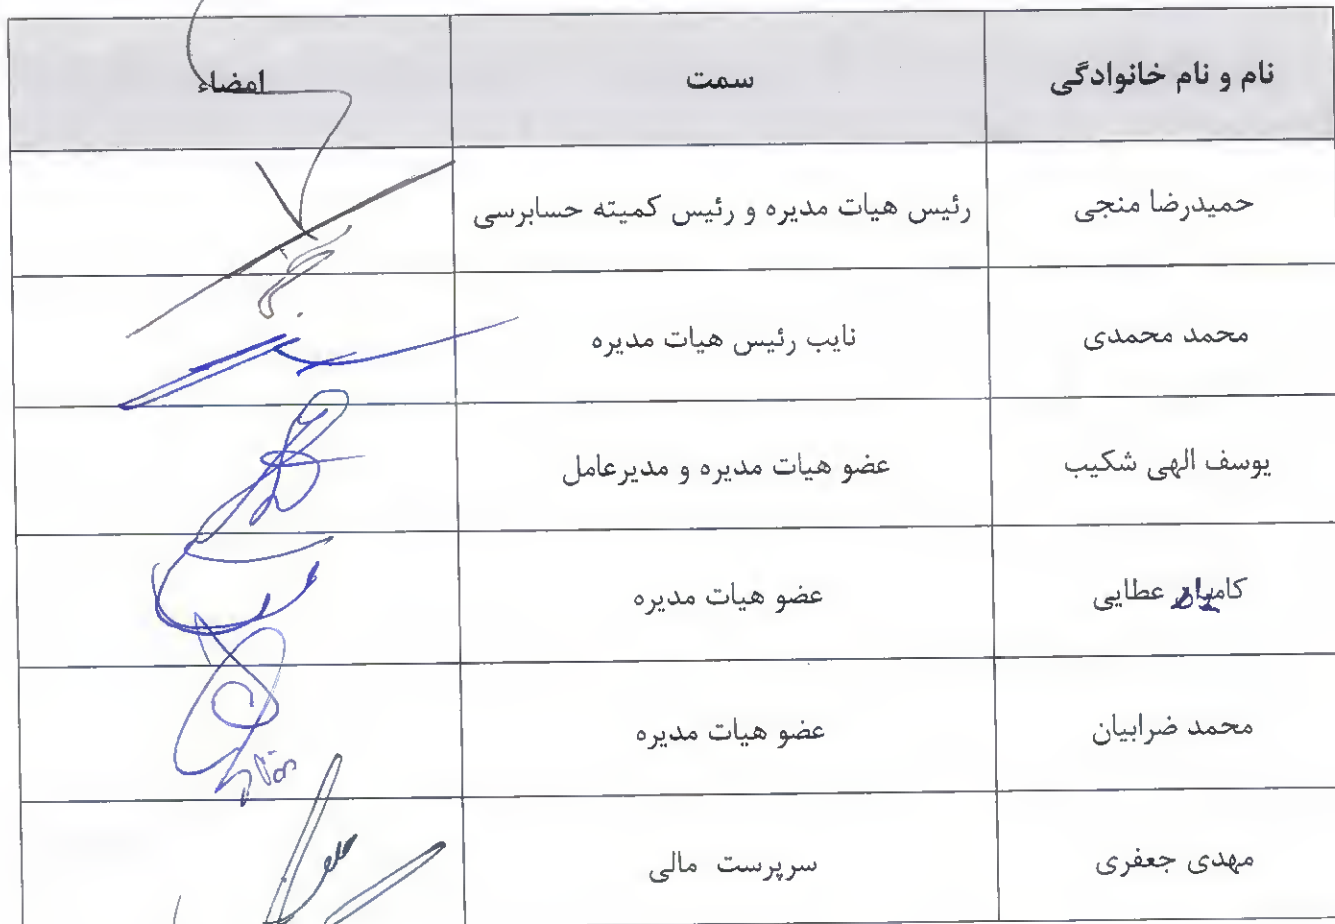 نام و نام خانوادگی سمت امضاء
حمیدرضا منجی رئیس هیات مدیره و رئیس کمیته حسابرسی
محمد محمدی نایب رئیس هیات مدیره
یوسف الهی شکیب عضو هیات مدیره و مدیرعامل
عطایی عضو هیات مدیره
محمد ضرابیان عضو هیات مدیره
مهدی جعفری سرپرست مالی